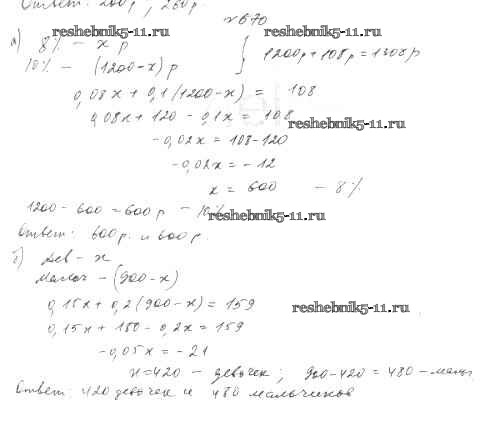 Ответ: 200р, 260р.
reshebnik5-11.ru
№670
а) 8% – x р
10% – (1200-x) р } 1200р+108р=1308р
reshebnik5-11.ru
0,08x + 0,1(1200-x) = 108
0,08x + 120 - 0,1x = 108
reshebnik5-11.ru
-0,02x = 108-120
-0,02x = -12
x = 600 – 8%
1200-600=600р – 10%
reshebnik5-11.ru
Ответ: 600р. и 600р.
б) Дев – x
Мальч – (900-x)
0,15x + 0,2(900-x) = 159
reshebnik5-11.ru
0,15x + 180 - 0,2x = 159
-0,05x = -21
x=420 – девочек; 900-420=480 – мальч
Ответ: 420 девочек и 480 мальчиков